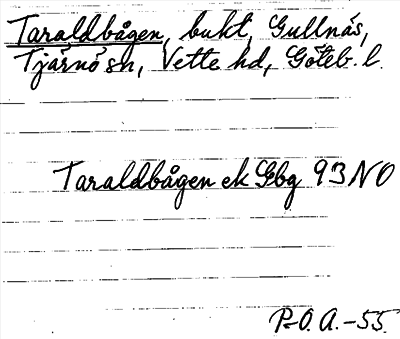 Taraldbågen, bukt, Gullnäs,
Tjärnö sn, Vette hd, Göteb. l.
Taraldbågen ek Gbg 93 NO
P-O. A. -55.